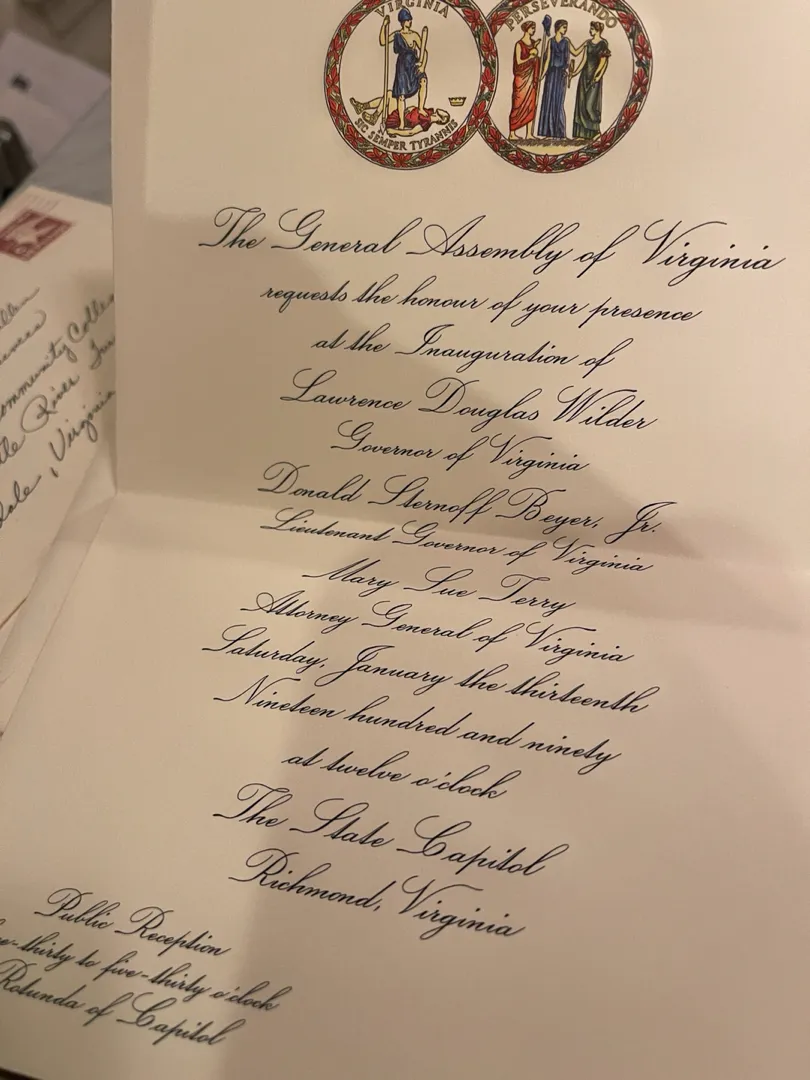 VIRGINIA
SIC SEMPER TYRANNIS
PERSEVERANDO
The General Assembly of Virginia
requests the honour of your presence
at the Inauguration of
Lawrence Douglas Wilder
Governor of Virginia
Donald Sternoff Beyer, Jr.
Lieutenant Governor of Virginia
Mary Sue Terry
Attorney General of Virginia
Saturday, January the thirteenth
Nineteen hundred and ninety
at twelve o'clock
The State Capitol
Richmond, Virginia
Public Reception
-thirty to five-thirty o'clock
Rotunda of Capitol
River
, Virginia